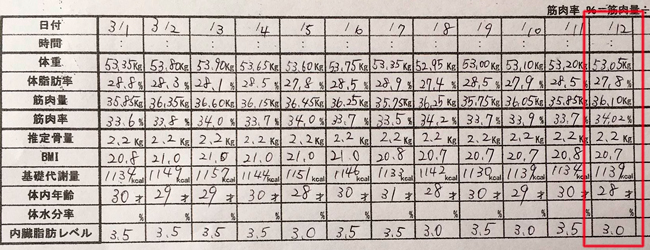 筋肉率 %=筋肉量÷
日付 3/1 3/2 /3 /4 /5 /6 /7 /8 /9 /10 /11 /12
時間 : : : : : : : : : : : :
体重 53.35Kg 53.80Kg 53.90Kg 53.65Kg 53.60Kg 53.75Kg 53.35Kg 52.95Kg 53.00Kg 53.10Kg 53.20Kg 53.05Kg
体脂肪率 28.8% 28.3% 28.1% 28.5% 27.8% 28.5% 28.9% 27.4% 28.5% 27.9% 28.5% 27.8%
筋肉量 35.85Kg 36.35Kg 36.60Kg 36.15Kg 36.45Kg 36.25Kg 35.75Kg 36.25Kg 35.75Kg 36.05Kg 35.85Kg 36.10Kg
筋肉率 33.6% 33.8% 34.0% 33.7% 34.0% 33.7% 33.5% 34.2% 33.7% 33.9% 33.7% 34.02%
推定骨量 2.2Kg 2.2Kg 2.2Kg 2.2Kg 2.2Kg 2.2Kg 2.2Kg 2.2Kg 2.2Kg 2.2Kg 2.2Kg 2.2Kg
BMI 20.8 21.0 21.0 21.0 21.0 21.0 20.8 20.7 20.7 20.7 20.8 20.7
基礎代謝量 1134kcal 1149kcal 1157kcal 1144kcal 1151kcal 1146kcal 1133kcal 1142kcal 1130kcal 1139kcal 1134kcal 1139kcal
体内年齢 30才 29才 29才 30才 28才 30才 31才 28才 30才 29才 30才 28才
体水分率 % % % % % % % % % % % %
内臓脂肪レベル 3.5 3.5 3.5 3.5 3.0 3.5 3.5 3.0 3.5 3.0 3.5 3.0